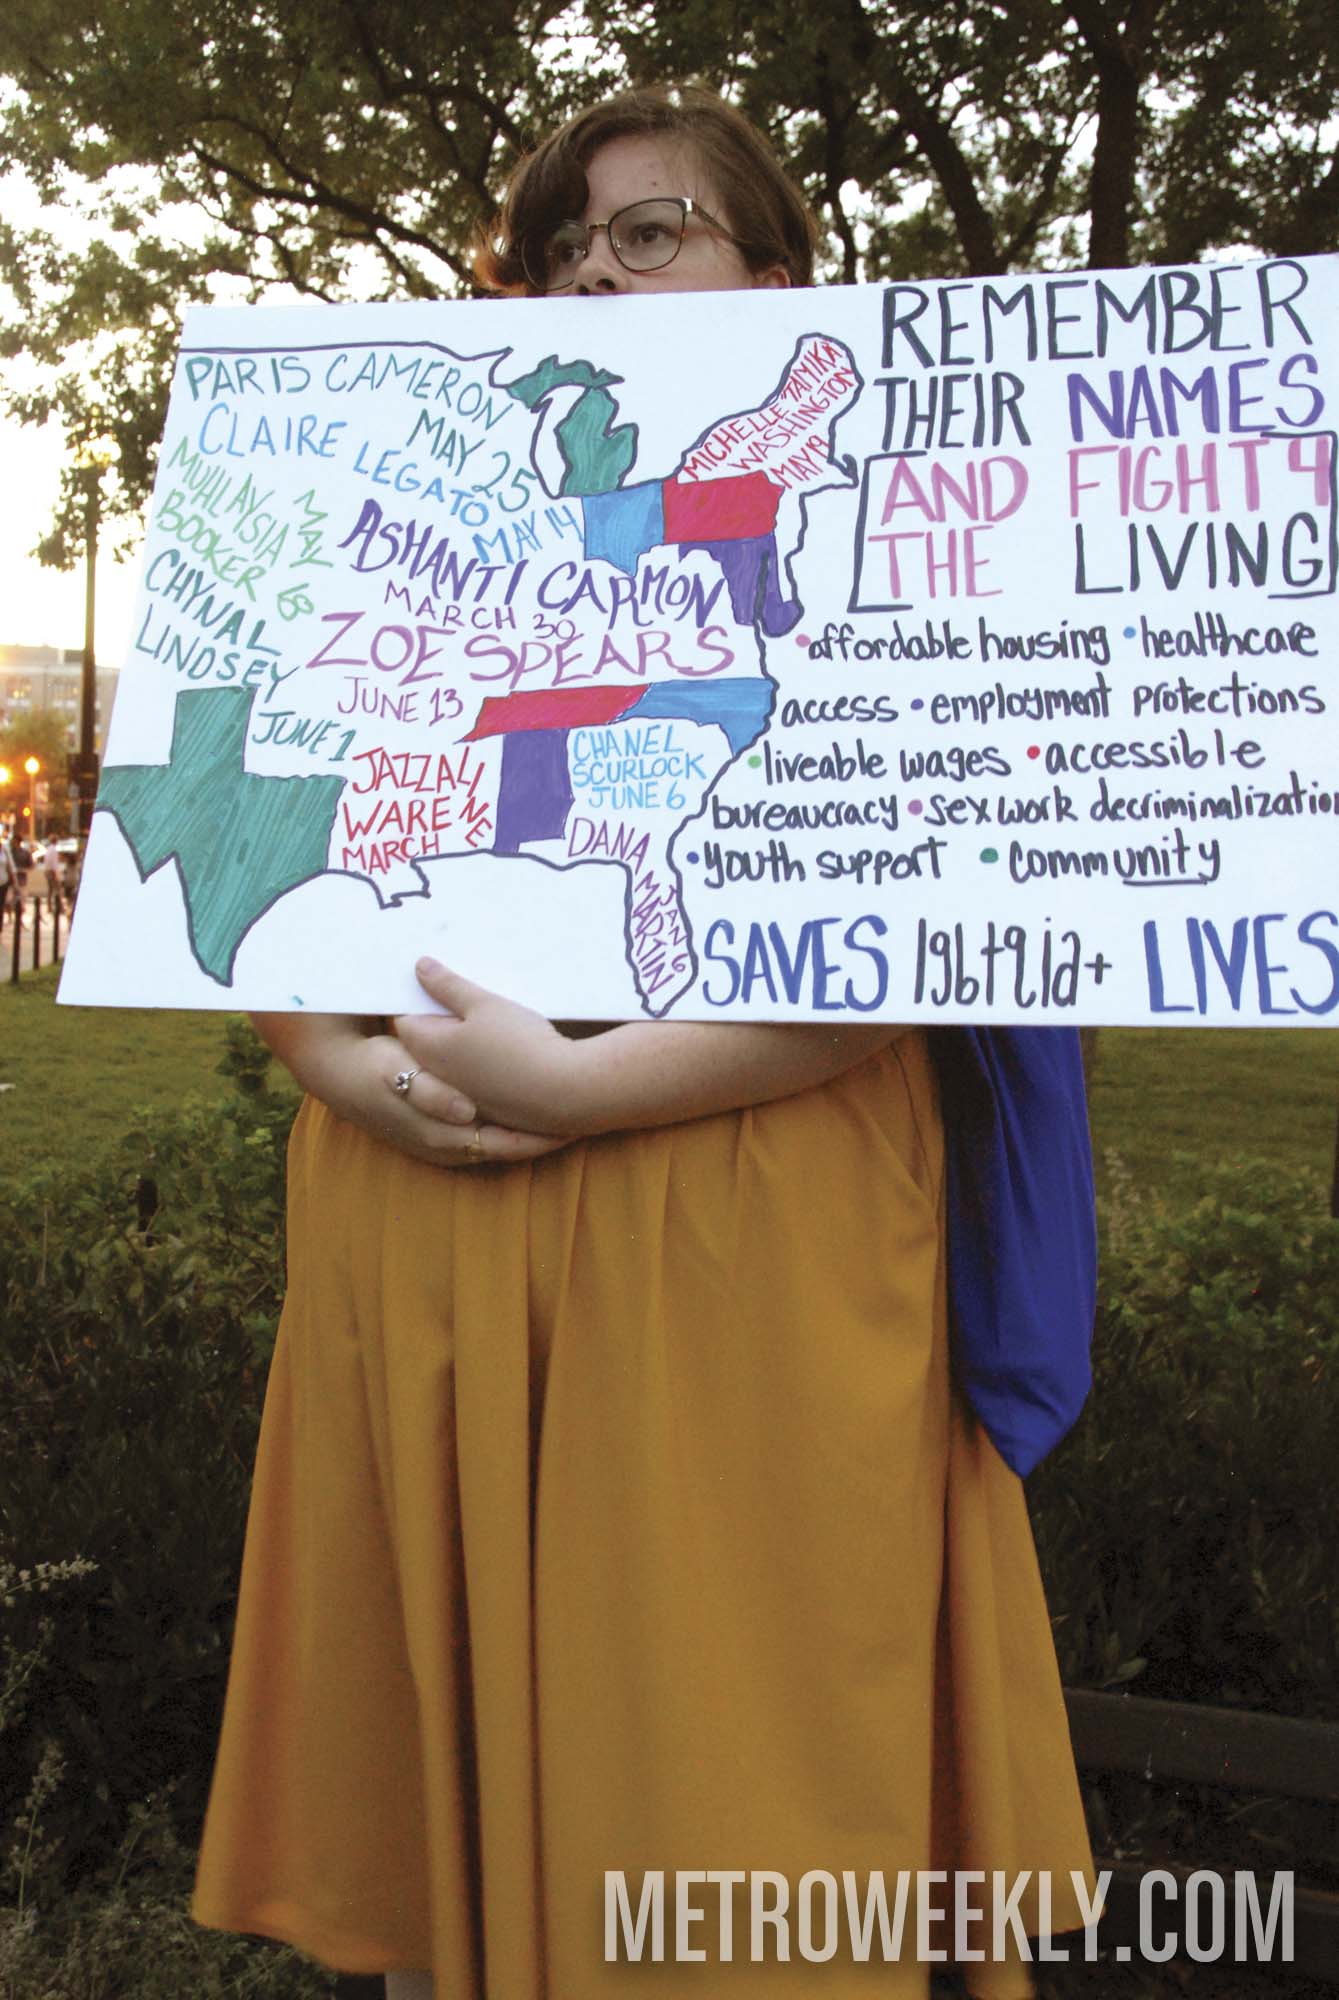 PARIS CAMERON
MAY 25
CLAIRE LEGATO
MAY 14
MUHLAYSIA
BOOKER
MAY
ASHANTI CARMON
MARCH 30
CHYNAL
LINDSEY
JUNE 1
ZOE SPEARS
JUNE 13
JAZZALINE
WARE
MARCH
CHANEL
SCURLOCK
JUNE 6
DANA
MARTIN
JAN 6
MICHELLE TAMIKA
WASHINGTON
MAY 19
REMEMBER
THEIR NAMES
AND FIGHT 4
THE LIVING
•affordable housing •healthcare
access •employment protections
•liveable wages •accessible
bureaucracy •sex work decriminalization
•youth support •community
SAVES lgbtqia+ LIVES
METROWEEKLY.COM